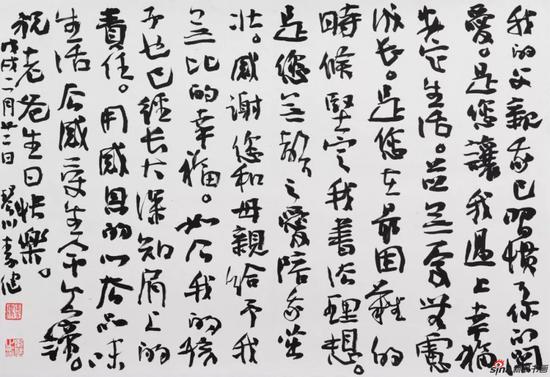 我的父親我已習慣了你的關
愛。是您讓我過上幸福
安定生活。無憂無慮
成长。是您在最困難的
時候堅定我書法理想。
是您無之愛陪我茁
壯。感謝您和母親給予我
無比的幸福。如今我的孩
子也已經长大深知肩上的
責任。用感恩的心品味
生活感受生命
祝老爸生日快樂。
戊戌二月廿二日
sina新浪书画